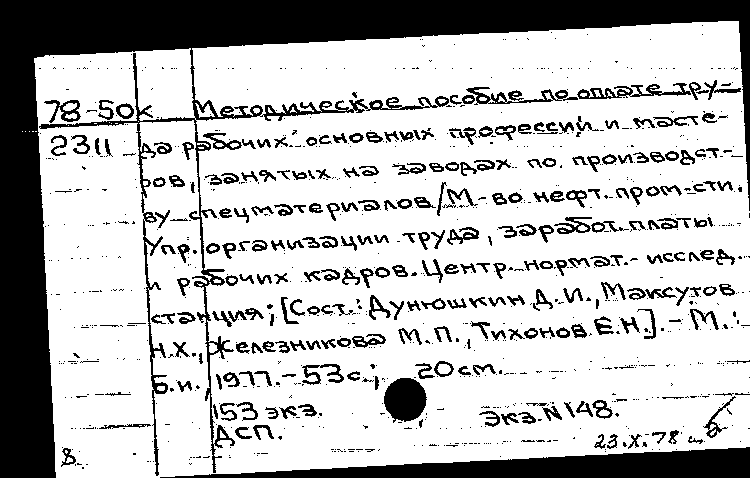 78-50к Методическое пособие по оплате тру-
2311 да рабочих основных профессий и масте-
ров, занятых на заводах по производст-
ву спецматериалов/М-во нефт. пром-сти.
Упр. организации труда, заработ. платы
и рабочих кадров. Центр. нормат.-исслед.
станция; [Сост.: Дунюшкин Д.И., Максутов
Н.Х., Железникова М.П., Тихонов Е.Н.]. - М.:
Б.и., 1977. - 53 с.; 20 см.
153 экз. Экз. N 148.
ДСП.
23.X.78
8.